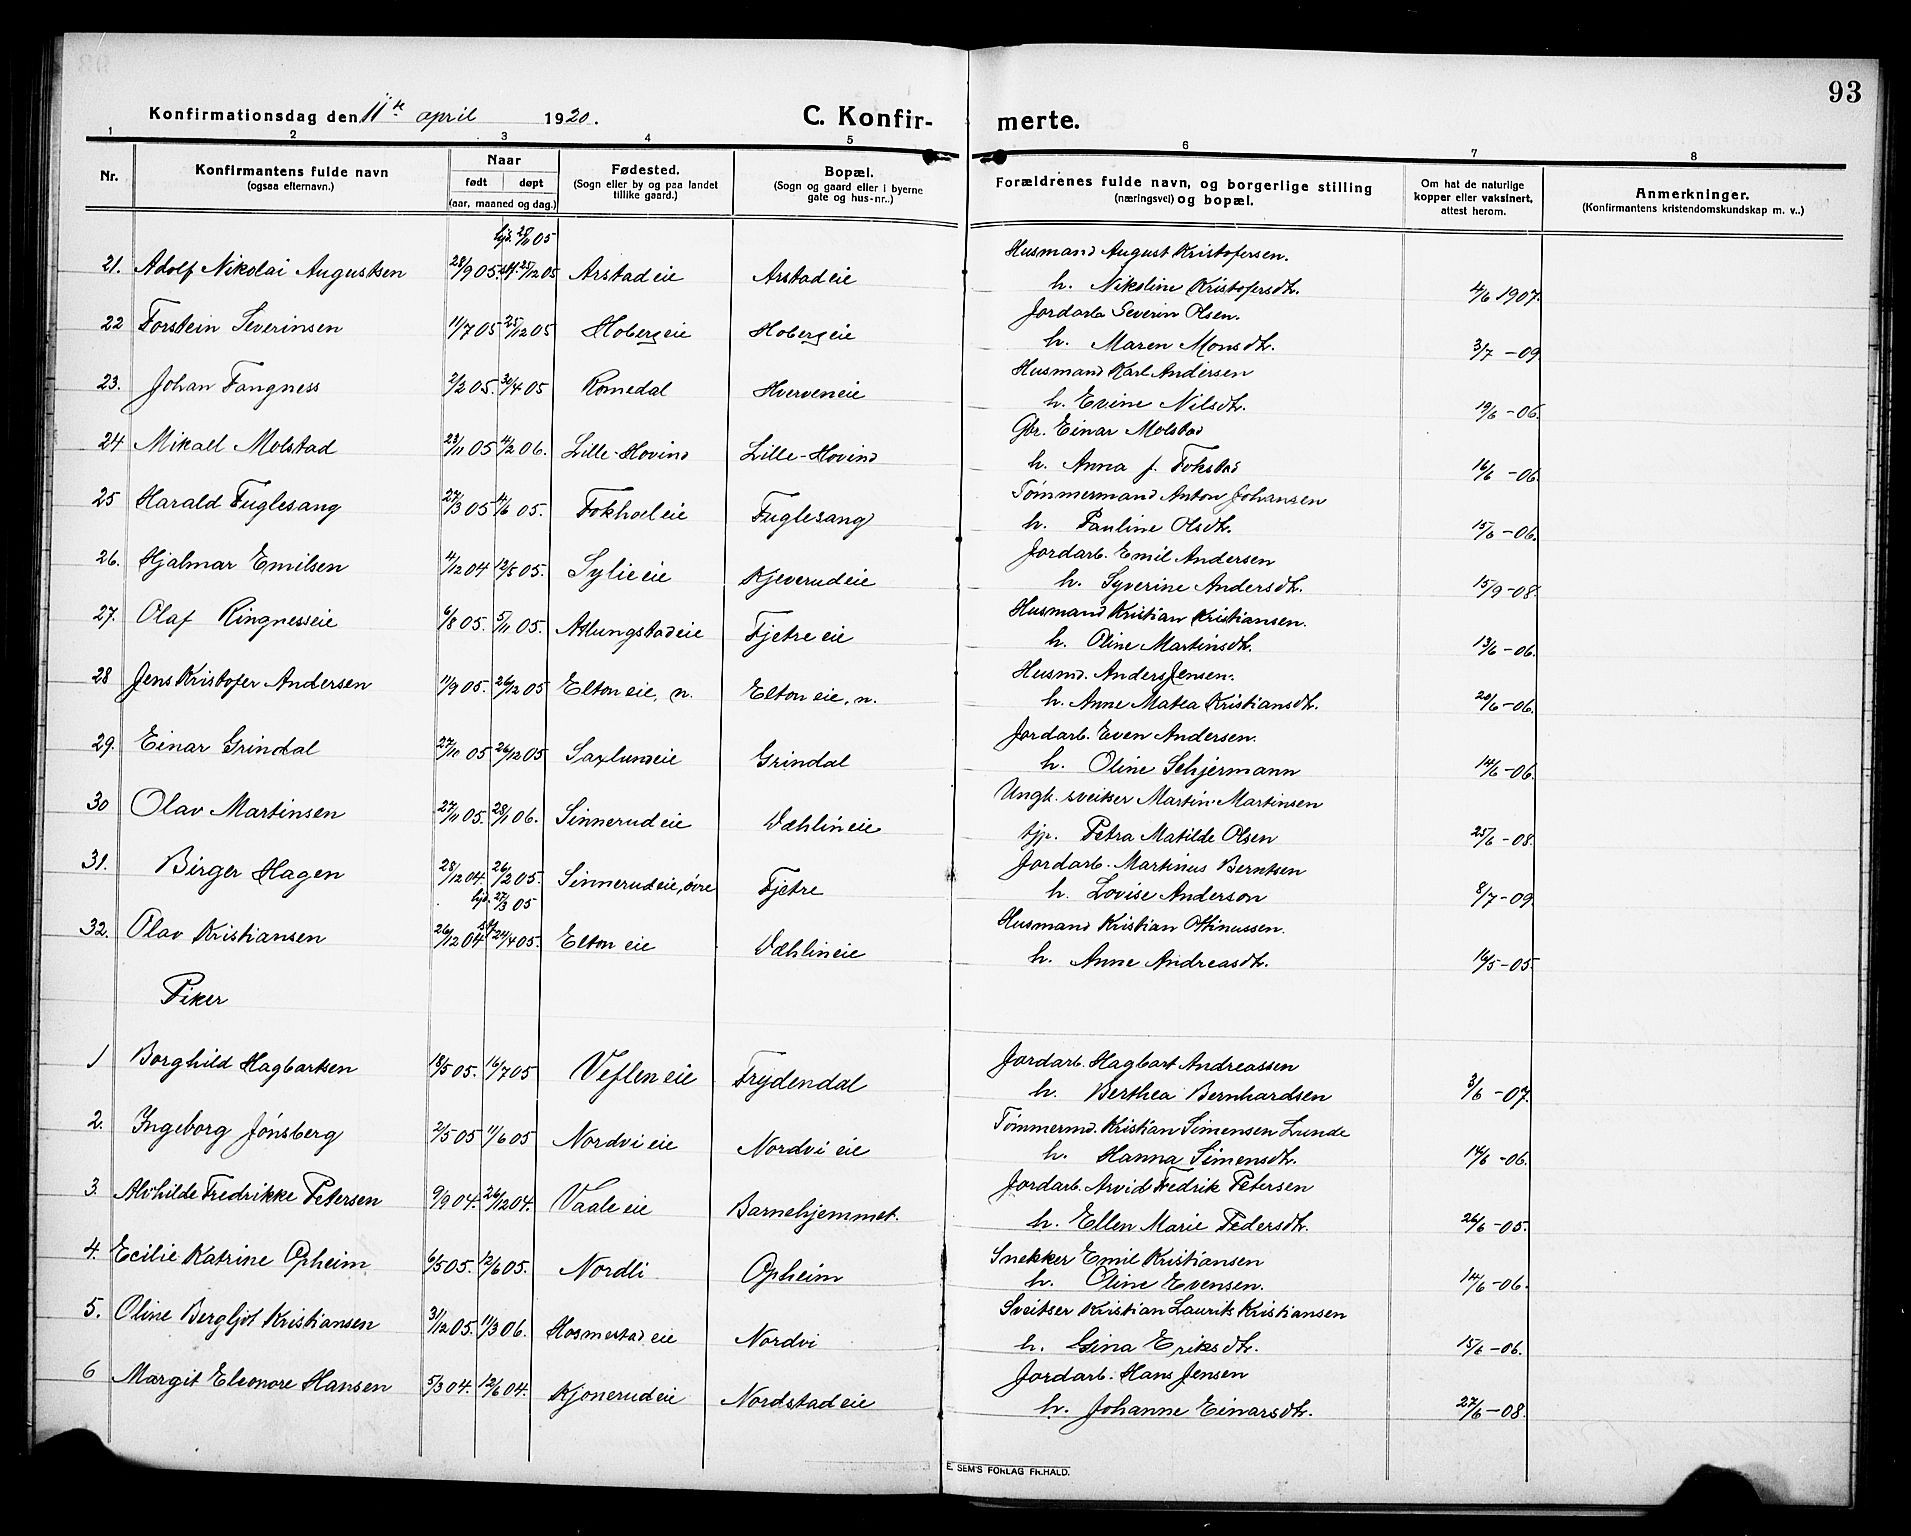 93
Konfirmationsdag den 11te april 1920.
C. Konfirmerte.
1 2 3 4 5 6 7 8
Nr.
Konfirmantens fulde navn
(ogsaa efternavn.)
Naar
født døpt
(aar, maaned og dag.)
Fødested.
(Sogn eller by og paa landet
tillike gaard.)
Bopæl.
(Sogn og gaard eller i byerne
gate og hus-nr..)
Forældrenes fulde navn, og borgerlige stilling
(næringsvei) og bopæl.
Om hat de naturlige
kopper eller vaksinert,
attest herom.
Anmerkninger.
(Konfirmantens kristendomskundskap m. v..)
21. Adolf Nikolai Augustsen 28/9 05. 25/12 05 Arstadeie Arstadeie Husmand August Kristofersen.
h. Nikoline Kristofersdtr. 4/6 1907.
22 Torstein Severinsen 11/7 05 25/12 05 Hobergeie Hobergeie Jordarb. Severin Olsen.
h. Maren Monsdtr. 3/7 - 09
23. Johan Tangness 2/2 05. 30/4 05 Romedal Hverveneie Husmand Karl Andersen
h. Evine Nilsdtr. 19/6 - 06.
24 Mikael Molstad 23/11 05 4/2 06. Lille-Hovind Lille-Hovind Gbr. Einar Molstad
h. Anna f. Tokstad 16/6 - 06.
25 Harald Fuglesang 27/3 05 4/6 05. Fokholeie Fuglesang Tømmermand Anton Johansen
h. Pauline Olsdtr. 15/6 - 06.
26. Hjalmar Emilsen 4/12 04 12/5 05. Sylieeie Kjeverudeie Jordarb. Emil Andersen
h. Syverine Andersdtr. 15/9 - 08.
27. Olaf Ringnesseie 6/8 05. 5/11 05. Atlungstadeie Fjetre eie Husmand Kristian Kristiansen.
h. Oline Martinsdtr. 13/6 - 06.
28 Jens Kristofer Andersen 11/9 05. 26/12 05 Elton eie, n. Elton eie, n. Husmd. Anders Jensen.
h. Anne Matea Kristiansdtr. 20/6 - 06.
29. Einar Grindal 27/10 05 26/12 05 Saxlundeie Grindal Jordarb. Even Andersen.
h. Oline Schjermann 14/6 - 06.
30 Olav Martinsen 27/11 05. 28/1 06. Sinnerudeie Væhlineie Ungk. sveitser Martin Martinsen
tjp. Petra Matilde Olsen 25/6 - 08.
31. Birger Hagen 28/12 04. 26/2 05. Sinnerudeie, övre Fjetre Jordarb. Martinus Berntsen
h. Lovise Anderson 8/7 - 09
32. Olav Kristiansen 26/12 04 27/3 05 24/4 05. Elton eie Væhlineie Husmand Kristian Othinussen.
h. Anne Andreasdtr. 16/5 - 05.
Piker
1 Borghild Hagbartsen 18/5 05. 16/7 05 Veflen eie Frydendal Jordarb. Hagbart Andreassen
h. Berthea Bernhardsen 3/6 - 07.
2. Ingeborg Jønsberg 2/5 05 11/6 05 Nordvi eie Nordvi eie Tømmermd. Kristian Simensen Lunde
h. Hanna Simensdtr. 14/6 - 06.
3. Alvhilde Fredrikke Petersen 9/9 04. 26/12 04. Vaale eie Barnehjemmet. Jordarb. Arvid Fredrik Petersen
h. Ellen Marie Pedersdtr. 26/6 - 05.
4. Ecilie Katrine Opheim 6/5 05. 12/6 05. Nordli Opheim Snekker Emil Kristiansen
h. Oline Evensen. 14/6 - 06.
5. Oline Bergljot Kristiansen 31/12 05. 11/3 06. Hosmestadeie Nordvi Sveitser Kristian Laurits Kristiansen
h. Gina Eriksdtr. 15/6 - 06.
6 Margit Eleonore Hansen 5/3 04. 12/6 04. Kjonerudeie Nordstadeie Jordarb. Hans Jensen
h. Johanne Einarsdtr. 27/6 - 08.
E. SEM'S FORLAG FR.HALD.